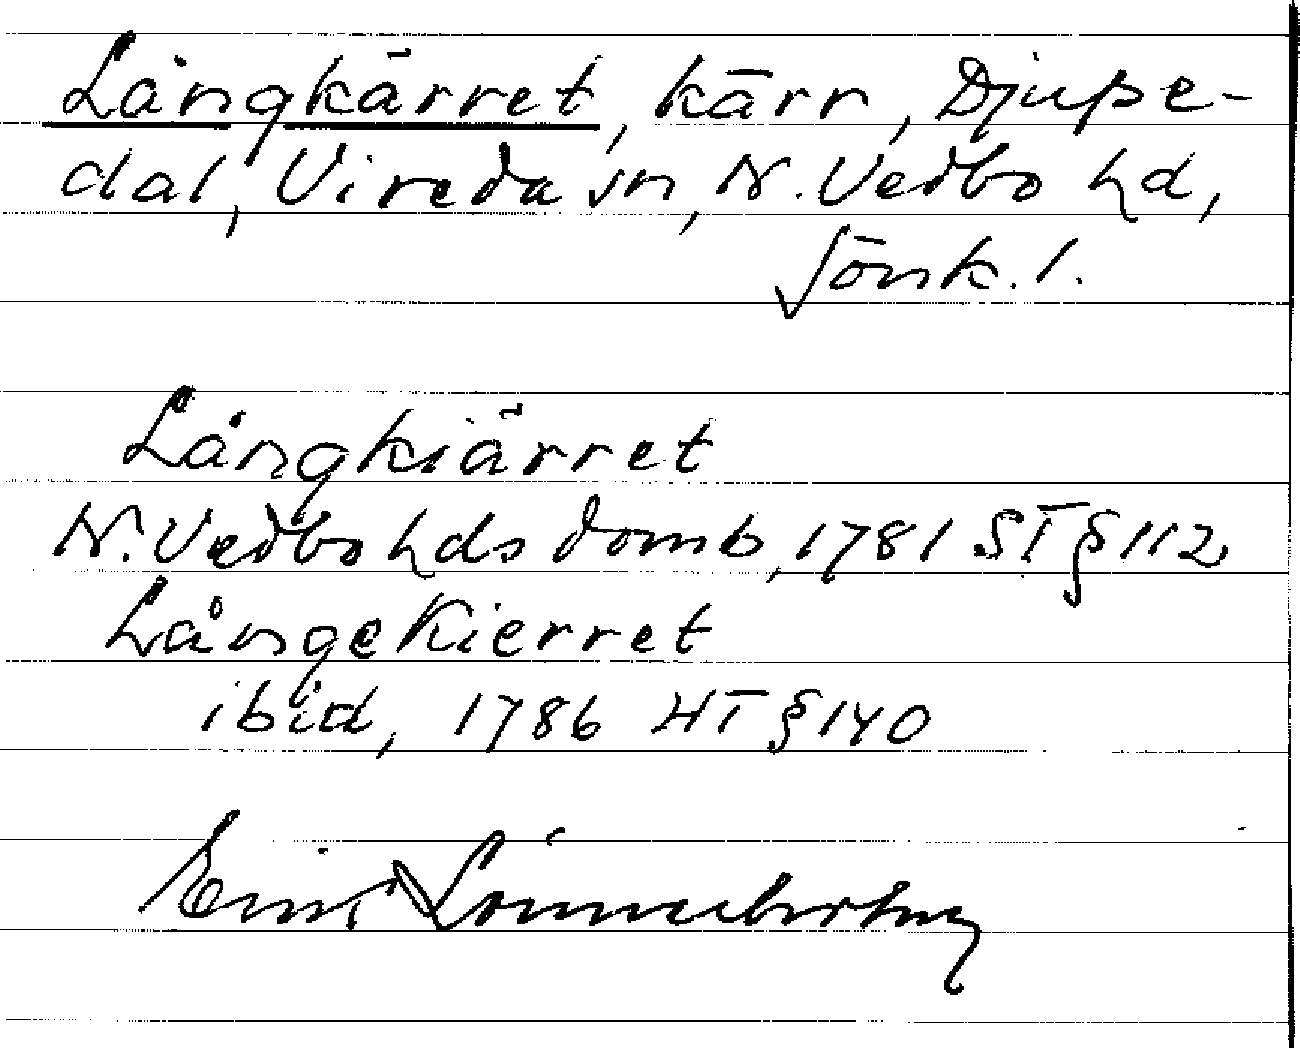 Långkärret, kärr, Djupe-
dal, Vireda sn, N. Vedbo hd,
Jönk. l.
Långkiärret
N. Vedbo hds domb, 1781 ST § 112
LångeKierret
ibid, 1786 HT § 140